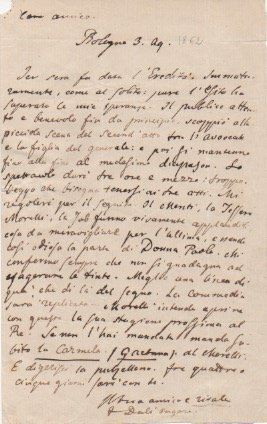 Caro amico.
Bologna 3. Ag. 1862
Ier sera fu data l'Eredità.
ramente, come al solito: pure l'esito ha
superato le mie speranze. Il pubblico atten
to e benevolo fin da principio, scoppiò alla
piccola scena del second'atto tra l'avvocato
e la figlia del generale: e poi si mantenne
fino alla fine al medesimo diapason. Lo
spettacolo durò tre ore e mezzo: troppo.
Veggo che bisogna tenersi ai tre atti. Mi
regolerò per il seguito. Il Menti, la
Morelli, la Job furono vivamente applauditi
cosa da maravigliare per l'ultima, essendo
odiosa la parte di Donna Paola. Mi
confermo sempre che non si guadagna ad
esagerare le tinte. Meglio una linea di
qua che di là del segno. La commedia
sarà replicata. Morelli intende aprire
con questa la sua stagione prossima al
Re. Se non l'hai mandata manda su
bito la Carmela (Gaetana) al Morelli.
E digerisci la pulzellona. Fra quattro o
cinque giorni sarò con te.
Il tuo amico e rivale
Dall'Ongaro